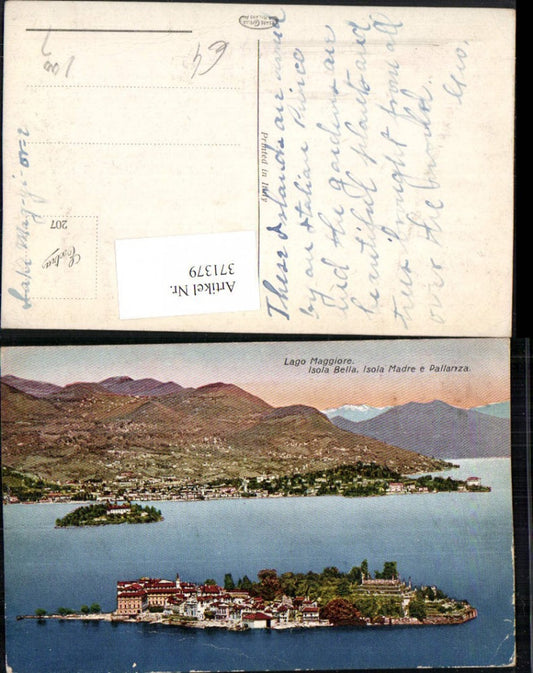 64
100
Printed in Italy
These Islands are owned
by an Italian Prince
and the gardens are
beautiful plants and
trees brought from all
over the world.
Geo.
Lake Mag-gi-or-e
207
Extra
Artikel Nr.
371379
Lago Maggiore.
Isola Bella, Isola Madre e Pallanza.